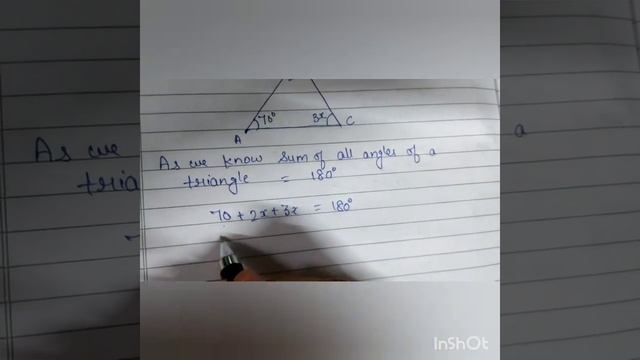 70°
3x
A
C
As we know sum of all angles of a
triangle = 180°
70 + 2x + 3x = 180°
As we
a
tria
InShOt